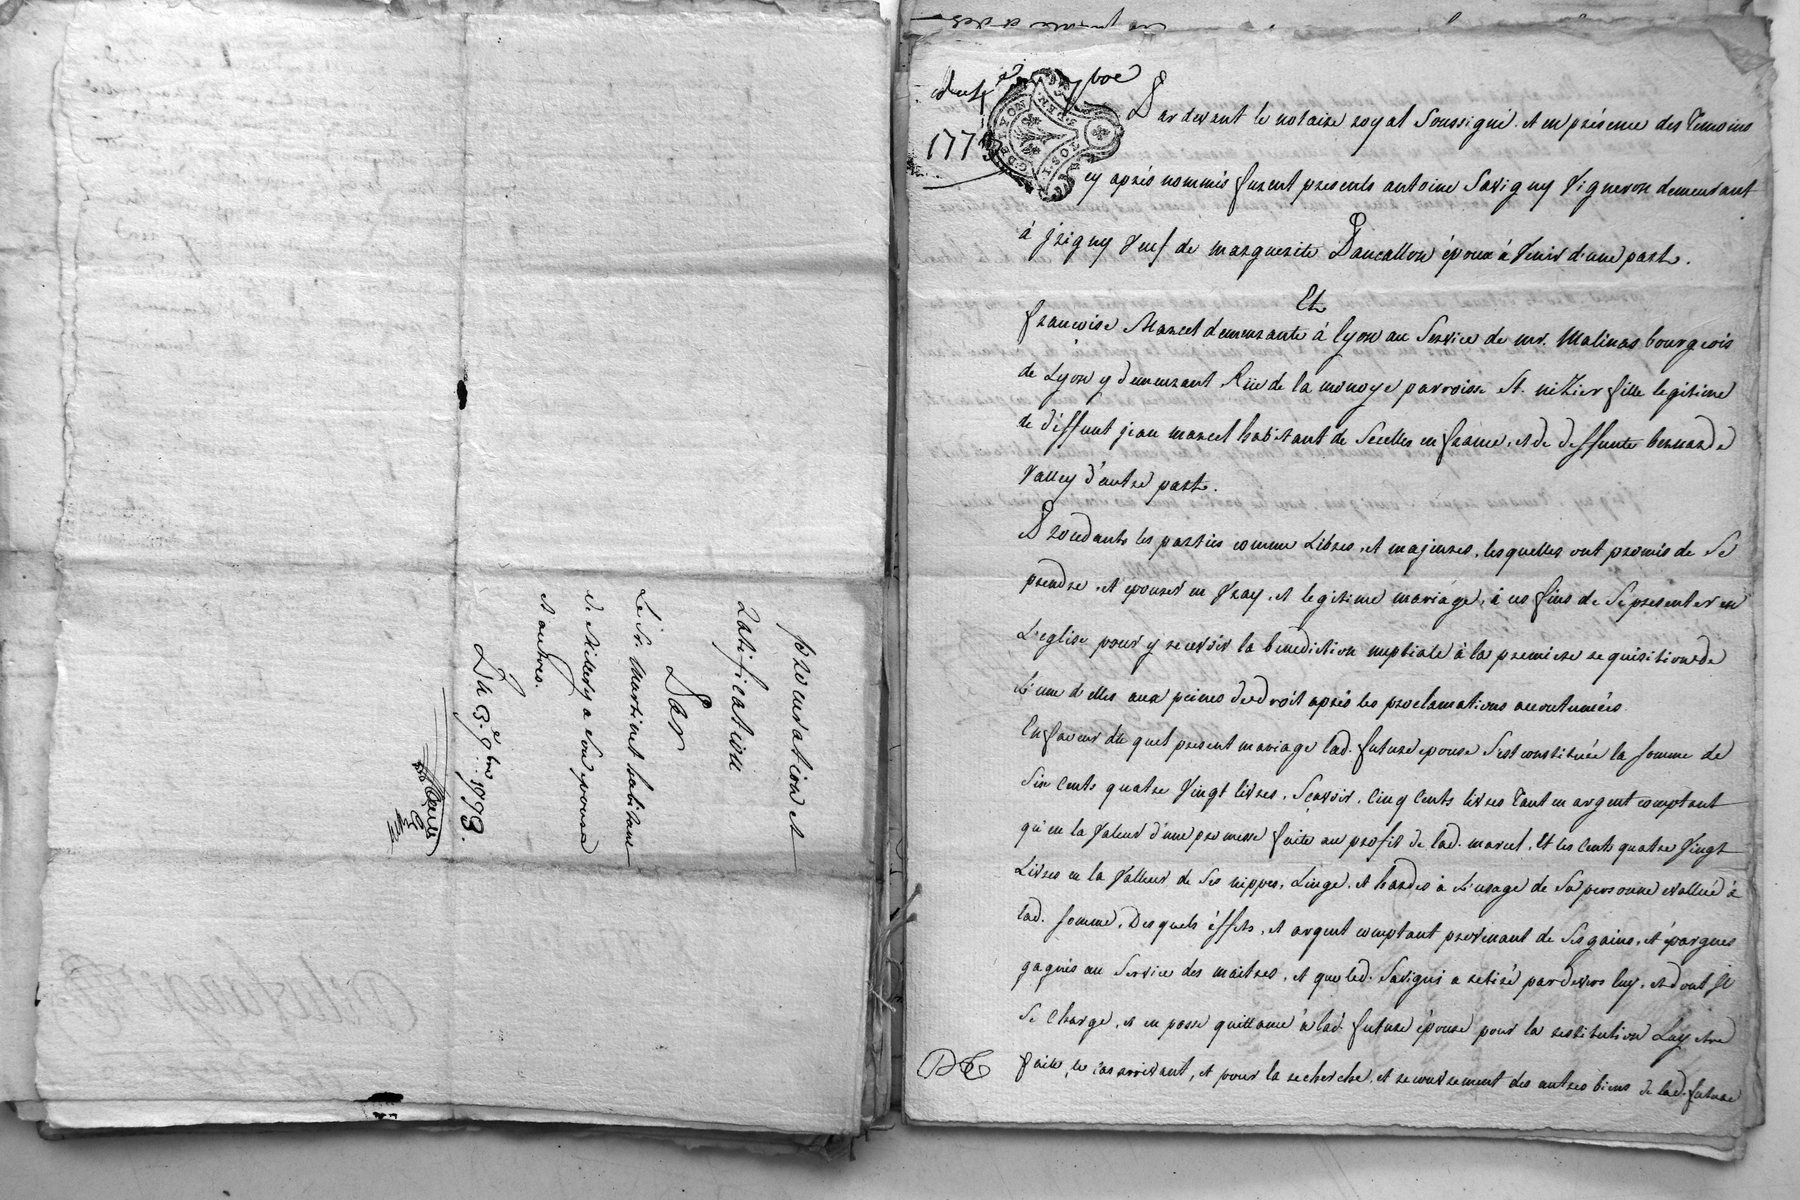 procuration et
Ratification
Par
Le Sr. Martinet habitant
de Millery a son epouse
et autres.
Du 3e. 9bre 1773.
1773
GDELYON
Pardevant le notaire royal Soussigné, et en présence des Temoins
cy après nommés furent presents antoine Savigny Vigneron demeurant
à jrigny Veuf de marguerite Dancallon époux à Venir d'une part.
Et
francoise Marcel demeurante à lyon au Service de mr. Malinas bourgeois
de Lyon y demeurant Rüe de la monoye parroisse St. nizier fille legitime
de déffunt jean marcel habitant de Secelles en france, et de deffunte bernarde
Valley d'autre part.
Procedants les parties comme Libres, et majeures, lesquelles ont promis de Se
prendre, et epouser en Vray, et legitime mariage, à ces fins de Se presenter en
L'eglise pour y recevoir la benediction nuptiale à la premiere requisition de
L'une d'elles aux peines de droit après les proclamations accoutumées.
En faveur du quel present mariage lad. future epouse S'est constituée la Somme de
Six Cents quatre Vingt livres, Scavoir, Cinq Cents livres Tant en argent comptant
qu'en la Valeur d'une promesse faite au profit de lad. marcel, Et les Cents quatre Vingt
Livres en la Valleur de Ses nippes, Linge, et hardes à L'usage de Sa personne evallué à
lad. Somme, Desquels éffets, et argent comptant provenant de Ses gains, et épargnes
gagnés au Service des maitres, et que led. Savigni a retiré pardevers luy, et dont Il
Se Charge, et en passe quittance à lad. future épouse pour la restitution Luy etre
faite, le cas arrivant, et pour la recherche, et recouvrement des autres biens de lad. future